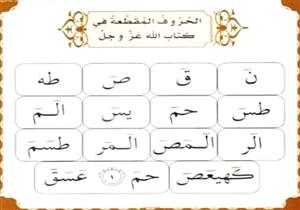 الحُرُوفُ المُقَطَّعَةُ فِي
كِتَابِ اللهِ عَزَّ وَجَلَّ
نَ قَ صَ طه
طسَ حمَ يسَ الَمَ
الَر الَمَصَ الَمَر طسَمَ
كَهيعَصَ حمَ ١ عَسَقَ